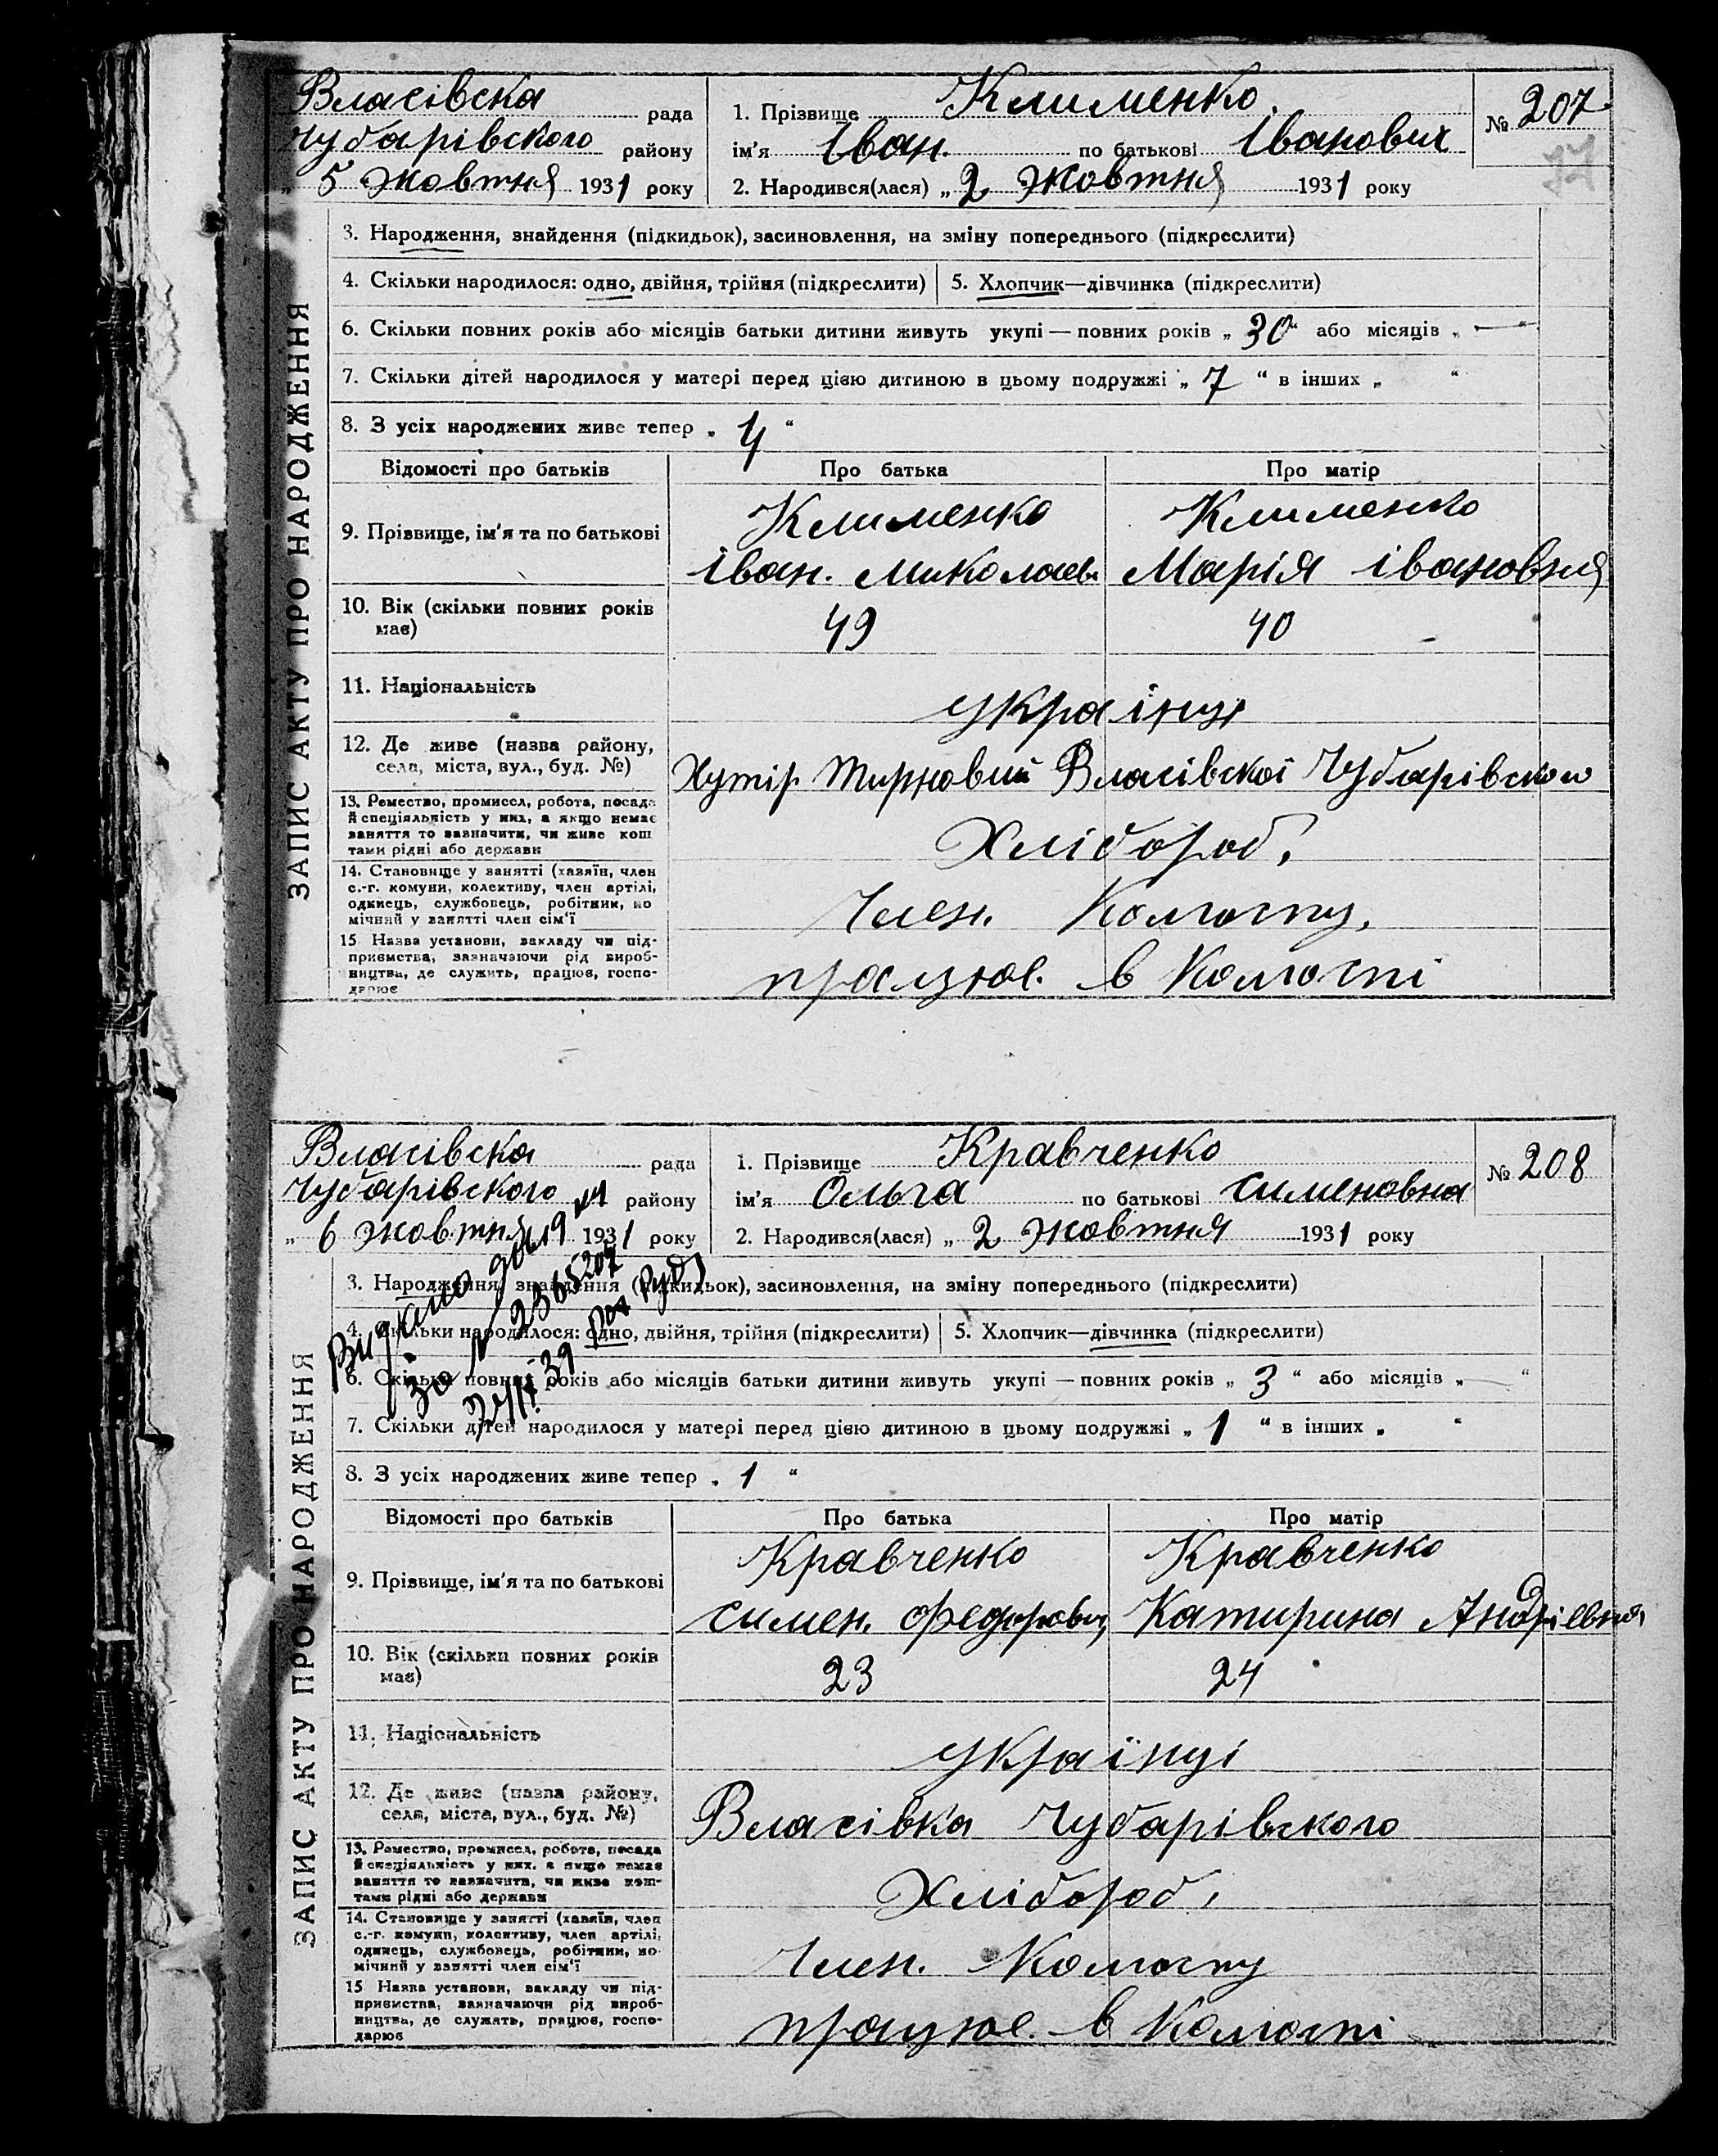 Власівска рада
Чубарівского району
„ 5 жовтня 1931 року
1. Прізвище Клименко.
ім'я Іван. по батькові Іванович
2. Народився(лася) „ 2 жовтня 1931 року
№ 207
77
ЗАПИС АКТУ ПРО НАРОДЖЕННЯ
3. Народження, знайдення (підкидьок), засиновлення, на зміну попереднього (підкреслити)
4. Скільки народилося: одно, двійня, трійня (підкреслити) 5. Хлопчик—дівчинка (підкреслити)
6. Скільки повних років або місяців батьки дитини живуть укупі — повних років „ 30 “ або місяців „ — “
7. Скільки дітей народилося у матері перед цією дитиною в цьому подружжі „ 7 “ в інших „ “
8. З усіх народжених живе тепер „ 4 “
Відомості про батьків Про батька Про матір
9. Прізвище, ім'я та по батькові
Клименко Клименко
Іван. Миколаєв. Марія івановня
10. Вік (скільки повних років має) 49 40
11. Національність
україн
12. Де живе (назва району,
села, міста, вул., буд. №)
Хутір Тирновий Власівскої Чубарівского
13. Ремество, промисел, робота, посада
й спеціяльність у них, а якщо немає
заняття то зазначити, чи живе кош
тами рідні або держави
Хлібороб.
14. Становище у занятті (хазяїн, член
с.-г. комуни, колективу, член артілі,
одинець, службовець, робітник, по
мічний у занятті член сім'ї
Член. Колгоспу.
15 Назва установи, закладу чи під-
приємства, зазначаючи рід вироб-
ництва, де служить, працює, госпо-
дарює
працює. в Колгоспі
Власівска рада
Чубарівского району
„ 6 жовтня 1931 року
1. Прізвище Кравченко
ім'я Ольга по батькові сименовна
2. Народився(лася) „ 2 жовтня 1931 року
№ 208
ЗАПИС АКТУ ПРО НАРОДЖЕННЯ
3. Народження, знайдення (підкидьок), засиновлення, на зміну попереднього (підкреслити)
4. Скільки народилося: одно, двійня, трійня (підкреслити) 5. Хлопчик—дівчинка (підкреслити)
6. Скільки повних років або місяців батьки дитини живуть укупі — повних років „ 3 “ або місяців „ — “
7. Скільки дітей народилося у матері перед цією дитиною в цьому подружжі „ 1 “ в інших „ “
8. З усіх народжених живе тепер „ 1 “
Видано
за №
39
Відомості про батьків Про батька Про матір
9. Прізвище, ім'я та по батькові
Кравченко Кравченко
симен. Федорович Катирина Андріевна
10. Вік (скільки повних років має) 23 24
11. Національність
українці
12. Де живе (назва району,
села, міста, вул., буд. №)
Власівка Чубарівского
13. Ремество, промисел, робота, посада
й спеціяльність у них, а якщо немає
заняття то зазначити, чи живе кош-
тами рідні або держави
Хлібороб.
14. Становище у занятті (хазяїн, член
с.-г. комуни, колективу, член артілі,
одинець, службовець, робітник, по-
мічний у занятті член сім'ї
Член. Колгоспу
15 Назва установи, закладу чи під-
приємства, зазначаючи рід вироб-
ництва, де служить, працює, госпо-
дарює
працює. в Колгоспі